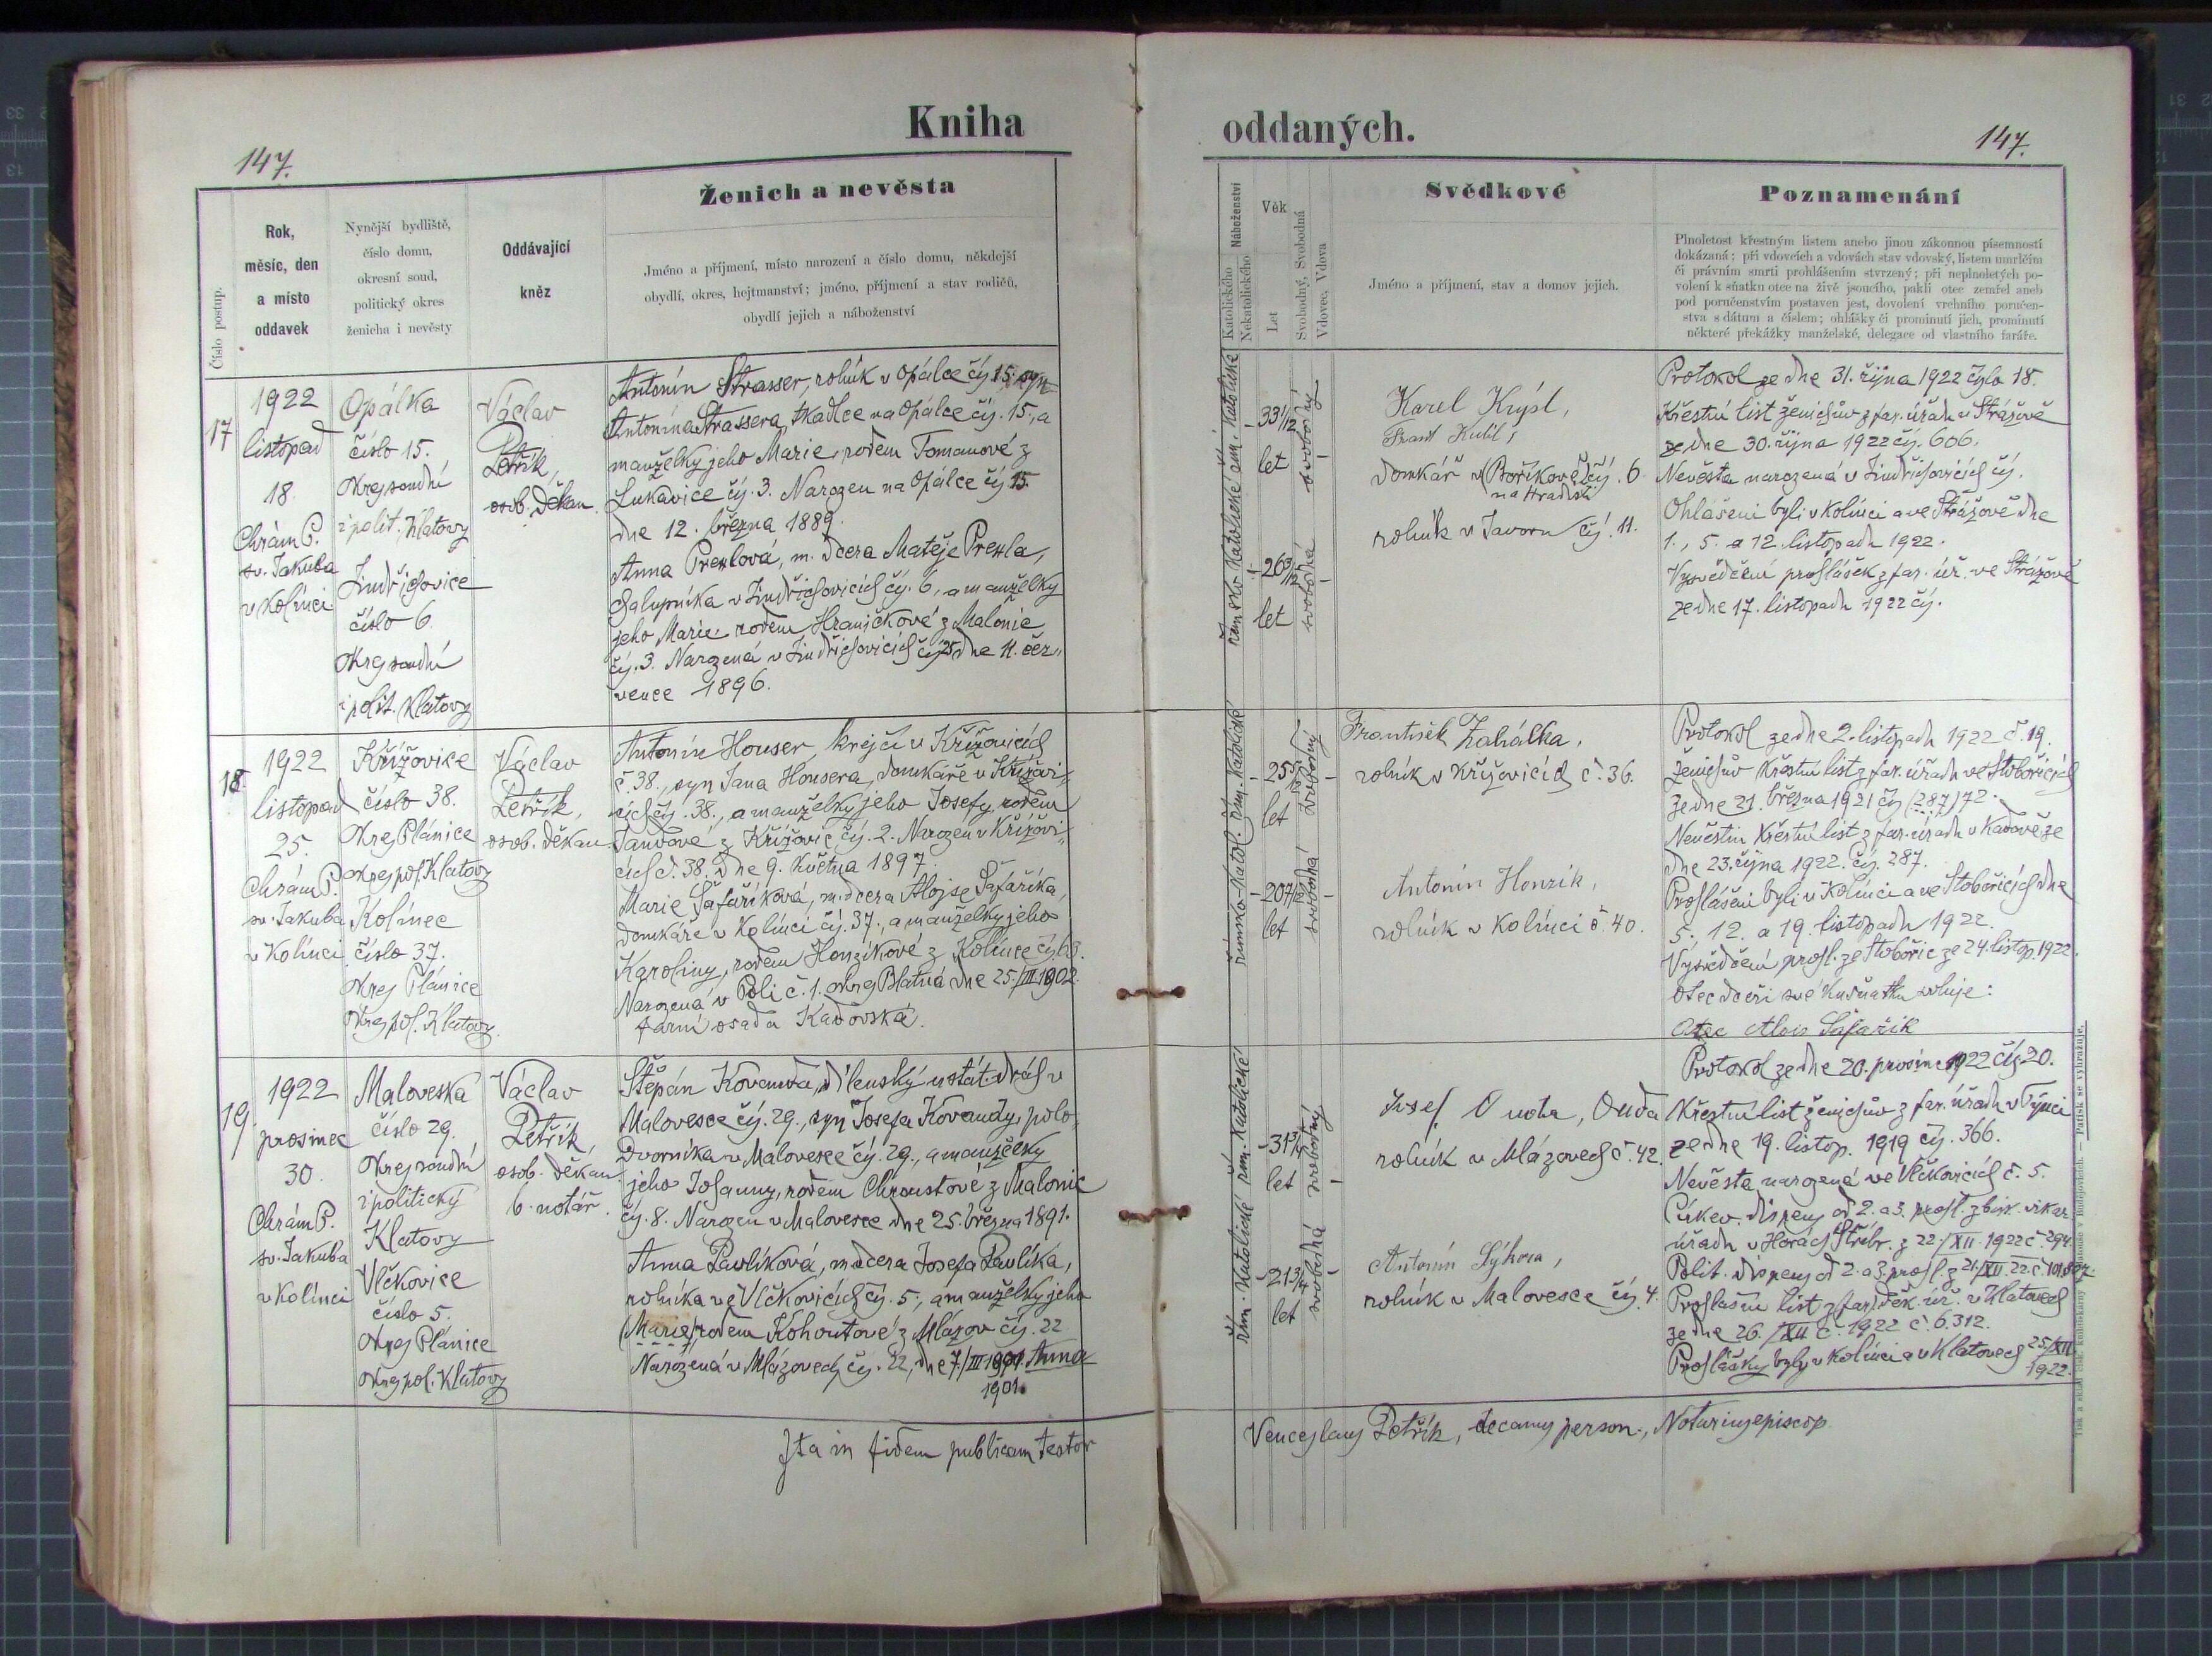 Kniha
147.
Ženich a nevěsta
Číslo postup.
Rok,
měsíc, den
a místo
oddavek
Nynější bydliště,
číslo domu,
okresní soud,
politický okres
ženicha i nevěsty
Oddávající
kněz
Jméno a příjmení, místo narození a číslo domu, někdejší
obydlí, okres, hejtmanství; jméno, příjmení a stav rodičů,
obydlí jejich a náboženství
17
1922
listopad
18.
Chrám P.
sv. Jakuba
v Kolínci
Opálka
číslo 15.
Okres soudní
i polit. Klatovy
Jindřichovice
číslo 6
Okres soudní
i polit. Klatovy
Václav
Petřík,
osob. děkan.
Antonín Strasser, rolník v Opálce čís. 15. syn
Antonína Strassera, tkadlce na Opálce čís. 15., a
manželky jeho Marie, rodem Tomanové z
Lukavice čís. 3. Narozen na Opálce čís 15.
dne 12. března 1889.
Anna Prexlová, m. dcera Matěje Prexla,
chalupníka v Jindřichovicích čís. 6, a manželky
jeho Marie rodem Hraničkové z Malonic
čís. 3. Narozená v Jindřichovicích čís 25 dne 11. čer„
vence 1896.
18.
1922
listopad
25.
Chrám P.
sv. Jakuba
v Kolínci
Křížovice
číslo 38.
Okres Plánice
okres pol. Klatovy
Kolinec
číslo 37.
Okres Plánice
Okres pol. Klatovy.
Václav
Petřík,
osob. děkan
Antonín Houser, krejčí v Křížovicích
č. 38., syn Jana Housera, domkáře v Křížovi„
cích čís. 38., a manželky jeho Josefy, rodem
Tandové z Křížovic, čís. 2. Narozen v Křížovi„
cích č. 38. dne 9. května 1897.
Marie Šafaříková, m. dcera Alojse Šafaříka,
domkáře v Kolínci čís. 37., a manželky jeho
Karoliny, rodem Honzíkové z Kolince čís. 63.
Narozená v Poli č. 1. okres Blatná dne 25/III 1902.
farní osada Kadovská.
19.
1922
prosinec
30.
Chrám P.
sv. Jakuba
v Kolínci
Maloveska
číslo 29.
Okres soudní
i politický
Klatovy
Vlčkovice
číslo 5.
Okres Plánice
Okres pol. Klatovy
Václav
Petřík,
osob. děkan
b. notář.
Štěpán Kovanda, dílenský u stát. drah v
Malovesce čís. 29., syn Josefa Kovandy, polo„
dvorníka v Malovesce čís. 29., a manželky
jeho Johanny, rodem Chroustové z Malonic
čís. 8. Narozen v Malovesce dne 25. března 1891.
Anna Pavlíková, m dcera Josefa Pavlíka,
rolníka ve Vlčkovicích čís. 5., a manželky jeho
(Marie) rodem Kohoutové z Mlázov čís. 22
Narozená v Mlázovech čís. 22, dne 7./III 1901. Anna
1901.
Ita in fidem publicam testor
oddaných.
147.
Katolického
Nekatolického
Náboženství
Věk
Let
Svobodný, Svobodná
Vdovec, Vdova
Svědkové
Jméno a příjmení, stav a domov jejich.
Poznamenání
Plnoletost křestným listem anebo jinou zákonnou písemností
dokázaná; při vdovcích a vdovách stav vdovský, listem umrlčím
či právním smrti prohlášením stvrzený; při neplnoletých po-
volení k sňatku otce na živě jsoucího, pakli otec zemřel aneb
pod poručenstvím postaven jest, dovolení vrchního poručen-
stva s dátum a číslem; ohlášky či prominutí jich, prominutí
některé překážky manželské, delegace od vlastního faráře.
33
let
svobodný
26
let
svobodná
Karel Krýsl,
domkář v Boříkově čís. 6
na Hradišti
rolník v Javoru čís. 11.
Protokol ze dne 31. října 1922 číslo 18.
Křestní list ženichův z far. úřadu v Strážově
ze dne 30. října 1922 čís. 606.
Nevěsta narozená v Jindřichovicích čís.
Ohlášeni byli v Kolínci a ve Strážově dne
1., 5. a 12. listopadu 1922.
Vysvědčení prohlášek z far. úř. ve Strážově
ze dne 17. listopadu 1922 čís.
řím. Katolické
25
let
svobodný
20
let
svobodná
František Zahálka,
rolník v Křížovicích č. 36.
Antonín Honzík,
rolník v Kolínci č. 40.
Protokol ze dne 2. listopadu 1922 č. 19.
Ženichův křestní list z far. úřadu ve Stobořicích
ze dne 21. března 1921 čís (287) 72.
Nevěstin křestní list z far. úřadu v Kadově ze
dne 23. října 1922. čís. 287.
Prohlášeni byli v Kolínci a ve Stobořicích dne
5. 12. a 19. listopadu 1922.
Vysvědčení prohl. ze Stobořic ze 24. listop. 1922.
Otec dceři své ku sňatku svoluje:
Otec Alois Šafařík
řím. Katolické řím. Katolické
31
let
svobodný
21
let
svobodná
Josef Duda, Duda
rolník v Mlázovech č. 42.
Antonín Sýkora,
rolník v Malovesce čís. 4.
Protokol ze dne 20. prosince 1922 čís 20.
Křestní list ženichův z far. úřadu v Týnci
ze dne 19. listop. 1919 čís. 366.
Nevěsta narozená ve Vlčkovicích č. 5.
Církev. dispens od 2. a 3. prohl. z bisk. vikar.
úřadu v Horách Stříbr. z 22./XII. 1922 č. 294.
Polit. dispens od 2. a 3. prohl. z 21/XII. 22. č.
Prohlašní list z far. děk. úř. v Klatovech
ze dne 26./XII č. 1922 č. 6.312.
Prohlášky byly v Kolínci a v Klatovech 25./XII
1922.
Venceslaus Petřík, decanus person., Notarius episcop.